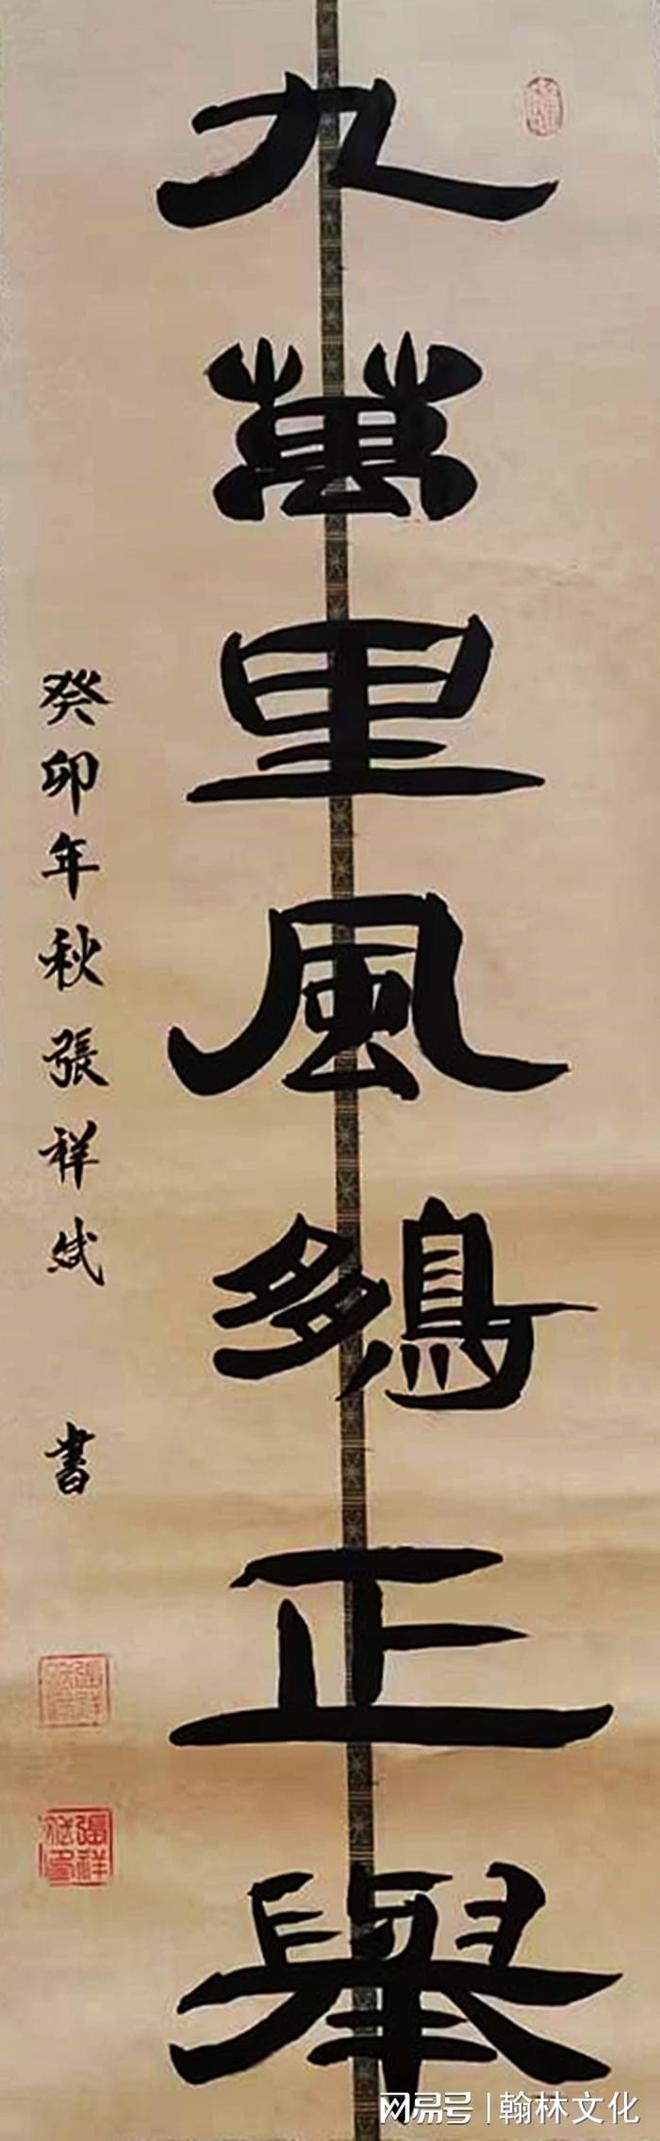 九萬里風鵬正舉
癸卯年秋張祥斌 書
网易号 | 翰林文化